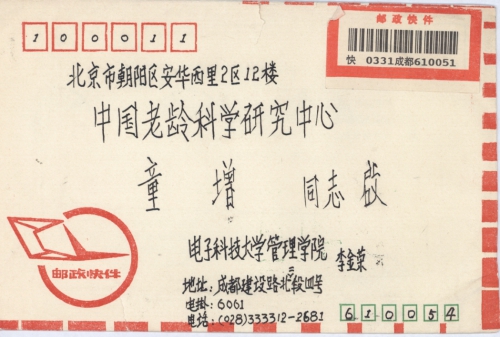 邮政快件
快 0331成都610051
100011
北京市朝阳区安华西里2区12楼
中国老龄科学研究中心
童增 同志啟
邮政快件
电子科技大学管理学院 李金荣
地址: 成都建设路北段四号
电掛: 6061
电话: (028)333312-2681
610054